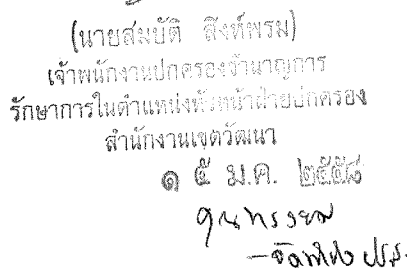 (นายสมบัติ สิงห์พรม)
เจ้าพนักงานปกครองชำนาญการ
รักษาการในตำแหน่งหัวหน้าฝ่ายปกครอง
สำนักงานเขตวัฒนา
๑ ๕ ม.ค. ๒๕๕๘